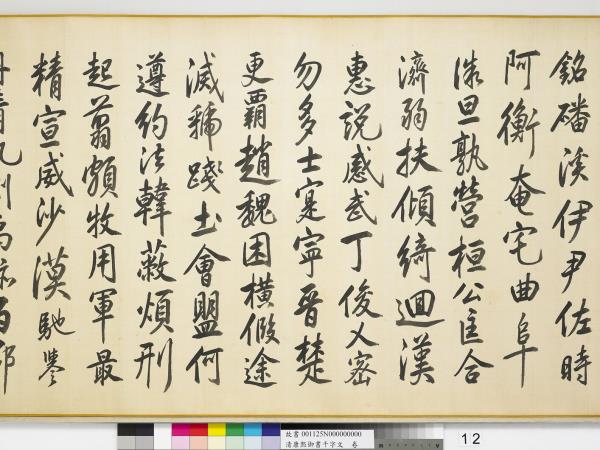 銘磻溪伊尹佐時
阿衡奄宅曲阜
微旦孰營桓公匡合
濟弱扶傾綺迴漢
惠說感武丁俊乂密
勿多士寔寧晉楚
更霸趙魏困橫假途
滅虢踐土會盟何
遵約法韓弊煩刑
起翦頗牧用軍最
精宣威沙漠馳譽
丹青九州禹跡百郡
故書 001125N000000000
清康熙御書千字文 卷
12